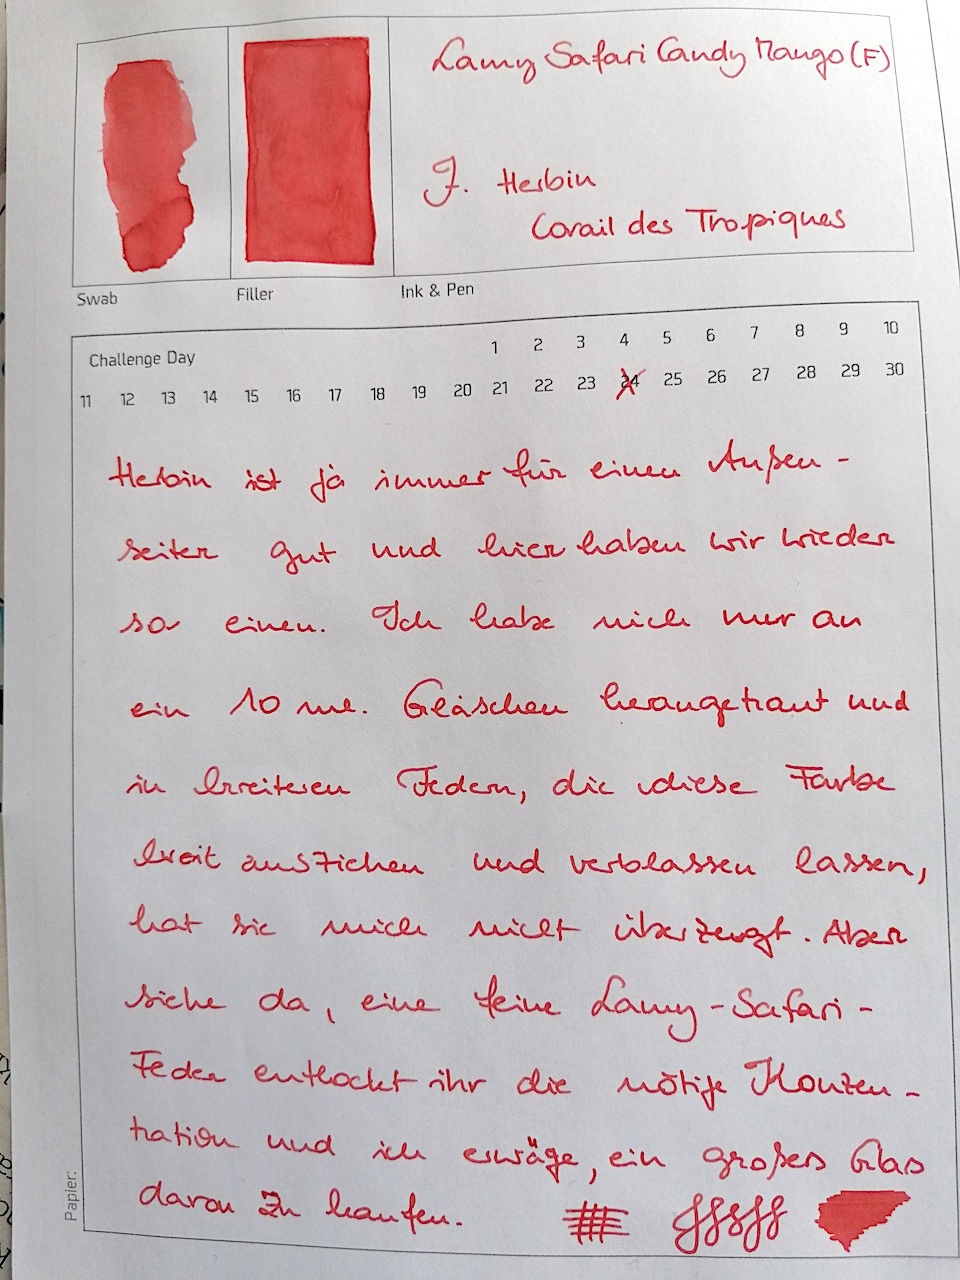 Lamy Safari Candy Mango (F)
J. Herbin
Corail des Tropiques
Swab
Filler
Ink & Pen
Challenge Day
1 2 3 4 5 6 7 8 9 10
11 12 13 14 15 16 17 18 19 20 21 22 23 24 25 26 27 28 29 30
Herbin ist ja immer für einen Außen-
seiter gut und hier haben wir wieder
so einen. Ich habe mich nur an
ein 10 ml. Gläschen herangetraut und
in breiteren Federn, die diese Farbe
breit ausziehen und verblassen lassen,
hat sie mich nicht überzeugt. Aber
siehe da, eine feine Lamy-Safari-
Feder entlockt ihr die nötige Konzen-
tration und ich erwäge, ein großes Glas
davon zu kaufen.
Papier: